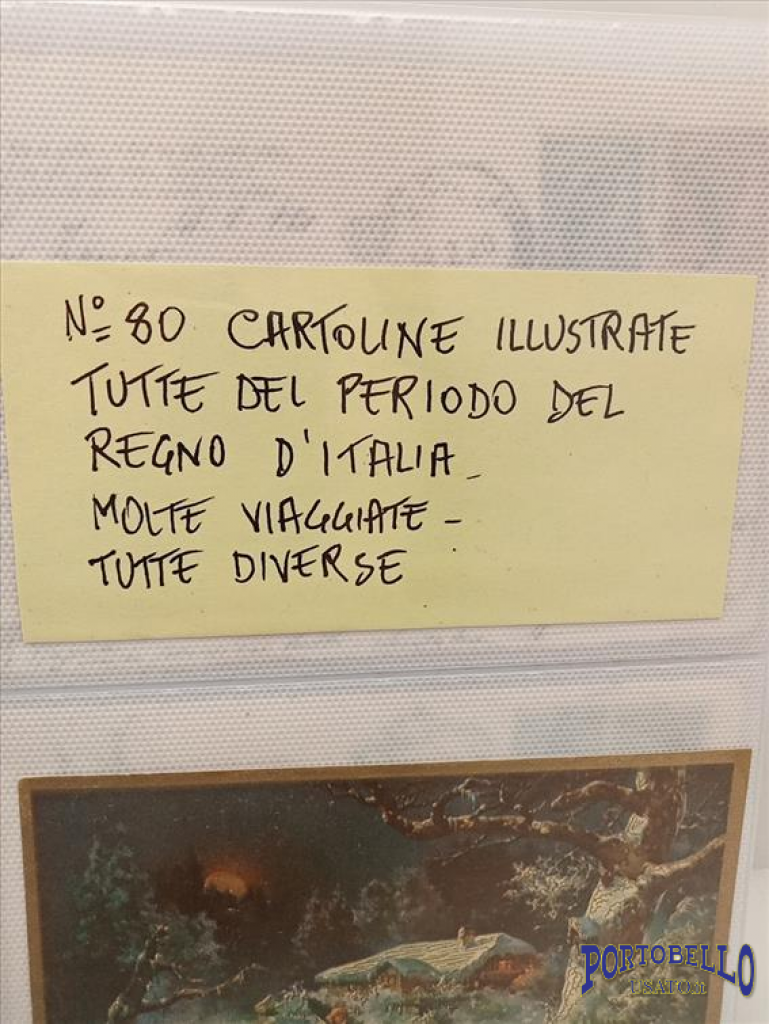 Nº 80 CARTOLINE ILLUSTRATE
TUTTE DEL PERIODO DEL
REGNO D'ITALIA -
MOLTE VIAGGIATE -
TUTTE DIVERSE
PORTOBELLO